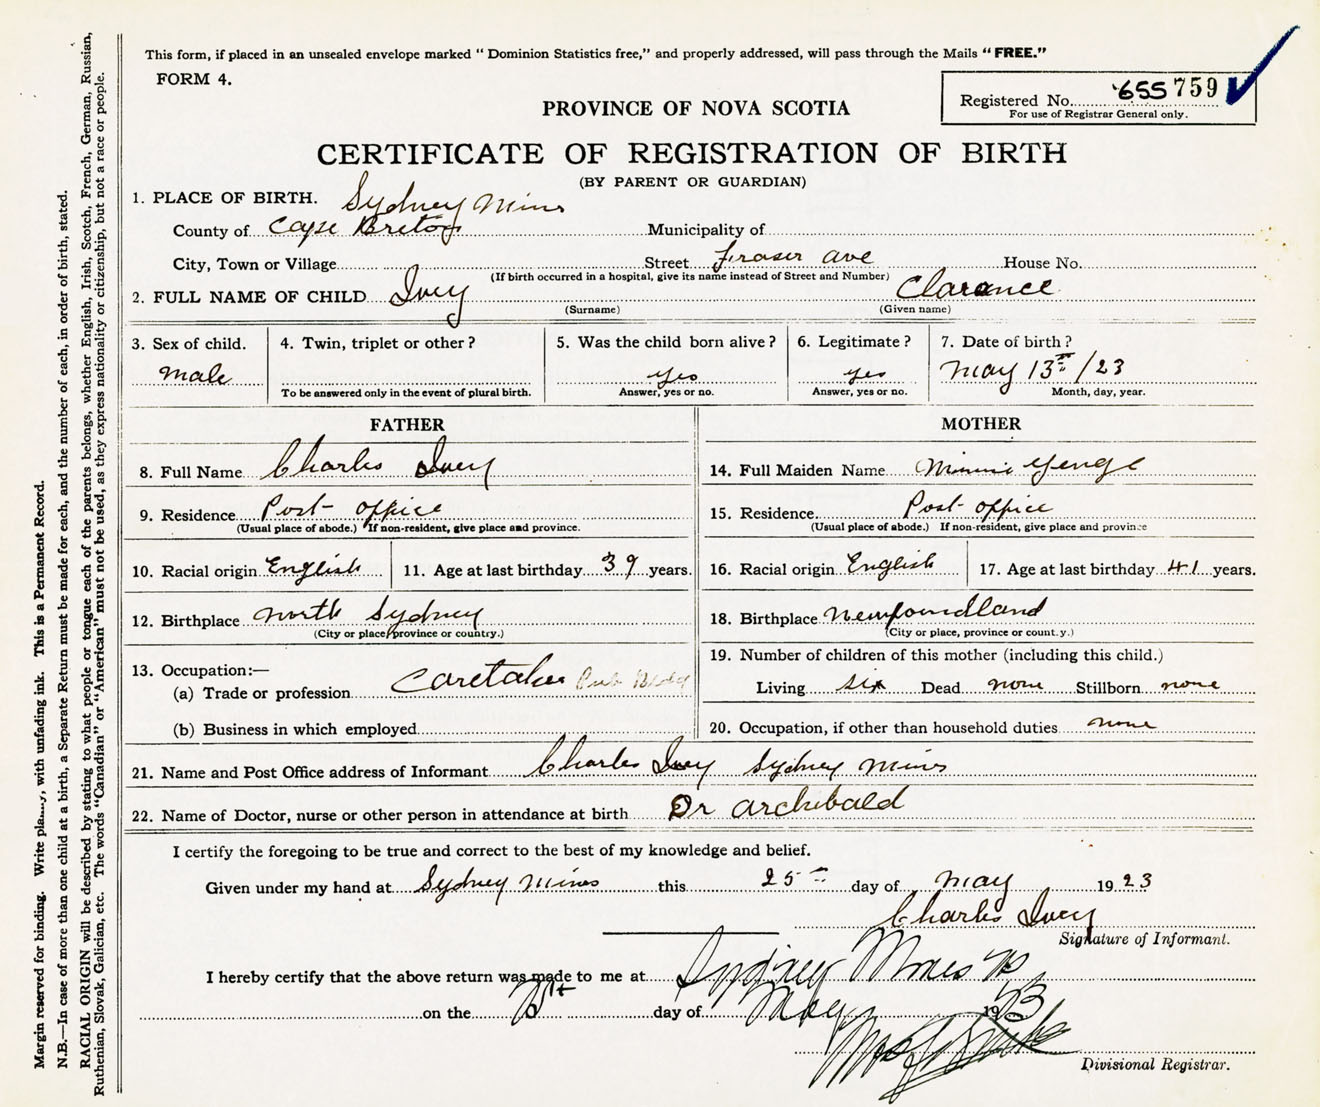 This form, if placed in an unsealed envelope marked "Dominion Statistics free," and properly addressed, will pass through the Mails "FREE."
FORM 4.
Registered No. 655759
For use of Registrar General only.
PROVINCE OF NOVA SCOTIA
CERTIFICATE OF REGISTRATION OF BIRTH
(BY PARENT OR GUARDIAN)
1. PLACE OF BIRTH. Sydney Mines
County of Cape Breton Municipality of
City, Town or Village Street Fraser Ave House No.
(If birth occurred in a hospital, give its name instead of Street and Number)
2. FULL NAME OF CHILD Ivey Clarance
(Surname) (Given name)
3. Sex of child. 4. Twin, triplet or other? 5. Was the child born alive? 6. Legitimate? 7. Date of birth?
male yes yes May 13th/23
To be answered only in the event of plural birth. Answer, yes or no. Answer, yes or no. Month, day, year.
FATHER MOTHER
8. Full Name Charles Ivey 14. Full Maiden Name Minnie Yenge
9. Residence Post office 15. Residence Post office
(Usual place of abode.) If non-resident, give place and province. (Usual place of abode.) If non-resident, give place and province
10. Racial origin English 11. Age at last birthday 39 years. 16. Racial origin English 17. Age at last birthday 41 years.
12. Birthplace North Sydney 18. Birthplace Newfoundland
(City or place, province or country.) (City or place, province or country.)
13. Occupation:— 19. Number of children of this mother (including this child.)
(a) Trade or profession Caretaker Pub Bldg Living six Dead none Stillborn none
(b) Business in which employed 20. Occupation, if other than household duties none
21. Name and Post Office address of Informant Charles Ivey Sydney Mines
22. Name of Doctor, nurse or other person in attendance at birth Dr Archibald
I certify the foregoing to be true and correct to the best of my knowledge and belief.
Given under my hand at Sydney Mines this 25th day of May 1923
Charles Ivey
Signature of Informant.
I hereby certify that the above return was made to me at Sydney Mines
on the day of May 1923
Divisional Registrar.
Margin reserved for binding. Write plainly, with unfading ink. This is a Permanent Record.
N.B.—In case of more than one child at a birth, a Separate Return must be made for each, and the number of each, in order of birth, stated.
RACIAL ORIGIN will be described by stating to what people or tongue each of the parents belongs, whether English, Irish, Scotch, French, German, Russian,
Ruthenian, Slovak, Galician, etc. The words "Canadian" or "American" must not be used, as they express nationality or citizenship, but not a race or people.